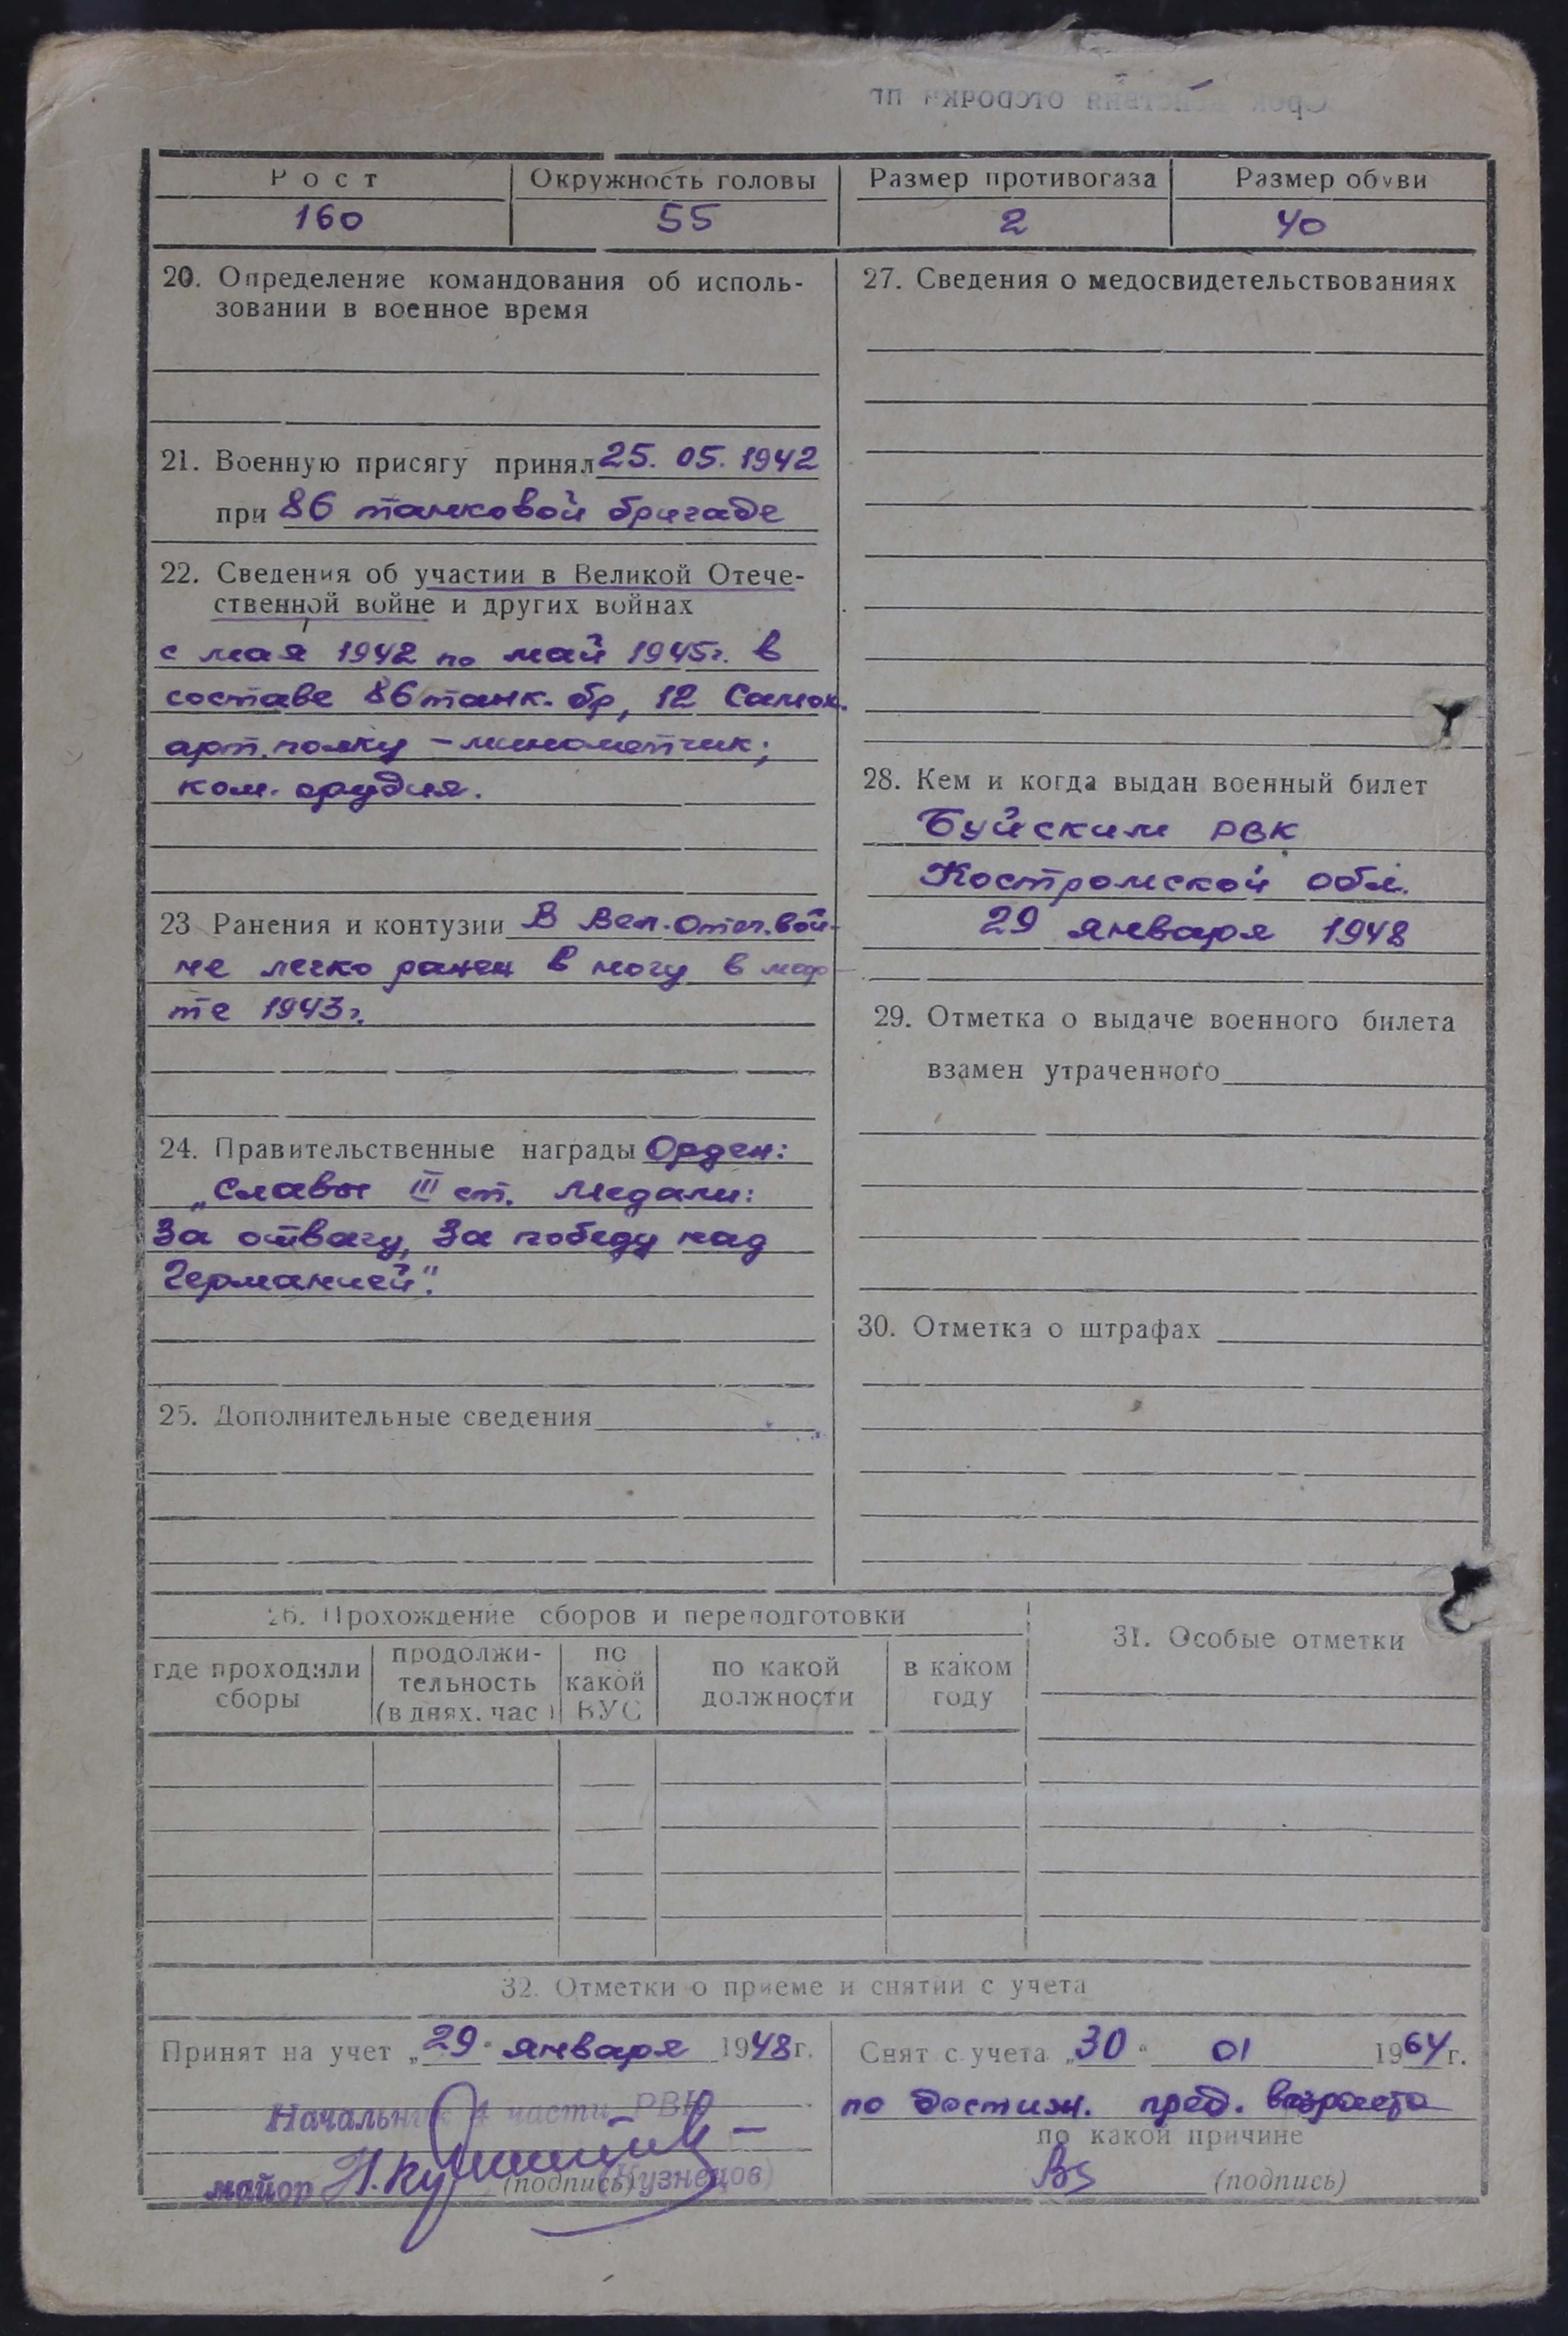 Срок действия отсрочки
Рост
Окружность головы
Размер противогаза
Размер обуви
160
55
2
40
20. Определение командования об исполь-
зовании в военное время
21. Военную присягу принял 25. 05. 1942
при 86 танковой бригаде
22. Сведения об участии в Великой Отече-
ственной войне и других войнах
с мая 1942 по май 1945г. в
составе 86 танк. бр, 12 Самох.
арт. полку – минометчик;
ком. орудия.
23 Ранения и контузии В Вел. Отеч. вой-
не легко ранен в ногу в мар-
те 1943г.
24. Правительственные награды Орден:
„Славы III ст. Медали:
За отвагу, За победу над
Германией".
25. Дополнительные сведения
27. Сведения о медосвидетельствованиях
28. Кем и когда выдан военный билет
Буйским РВК
Костромской обл.
29 января 1948
29. Отметка о выдаче военного билета
взамен утраченного
30. Отметка о штрафах
26. Прохождение сборов и переподготовки
где проходили
сборы
продолжи-
тельность
(в днях. час)
по
какой
ВУС
по какой
должности
в каком
году
31. Особые отметки
32. Отметки о приеме и снятии с учета
Принят на учет „29" января 1948г.
Начальник 4 части РВК
майор Н. Ку (подпись) (Кузнецов)
Снят с учета „30" 01 1964г.
по достиж. пред. возраста
по какой причине
(подпись)